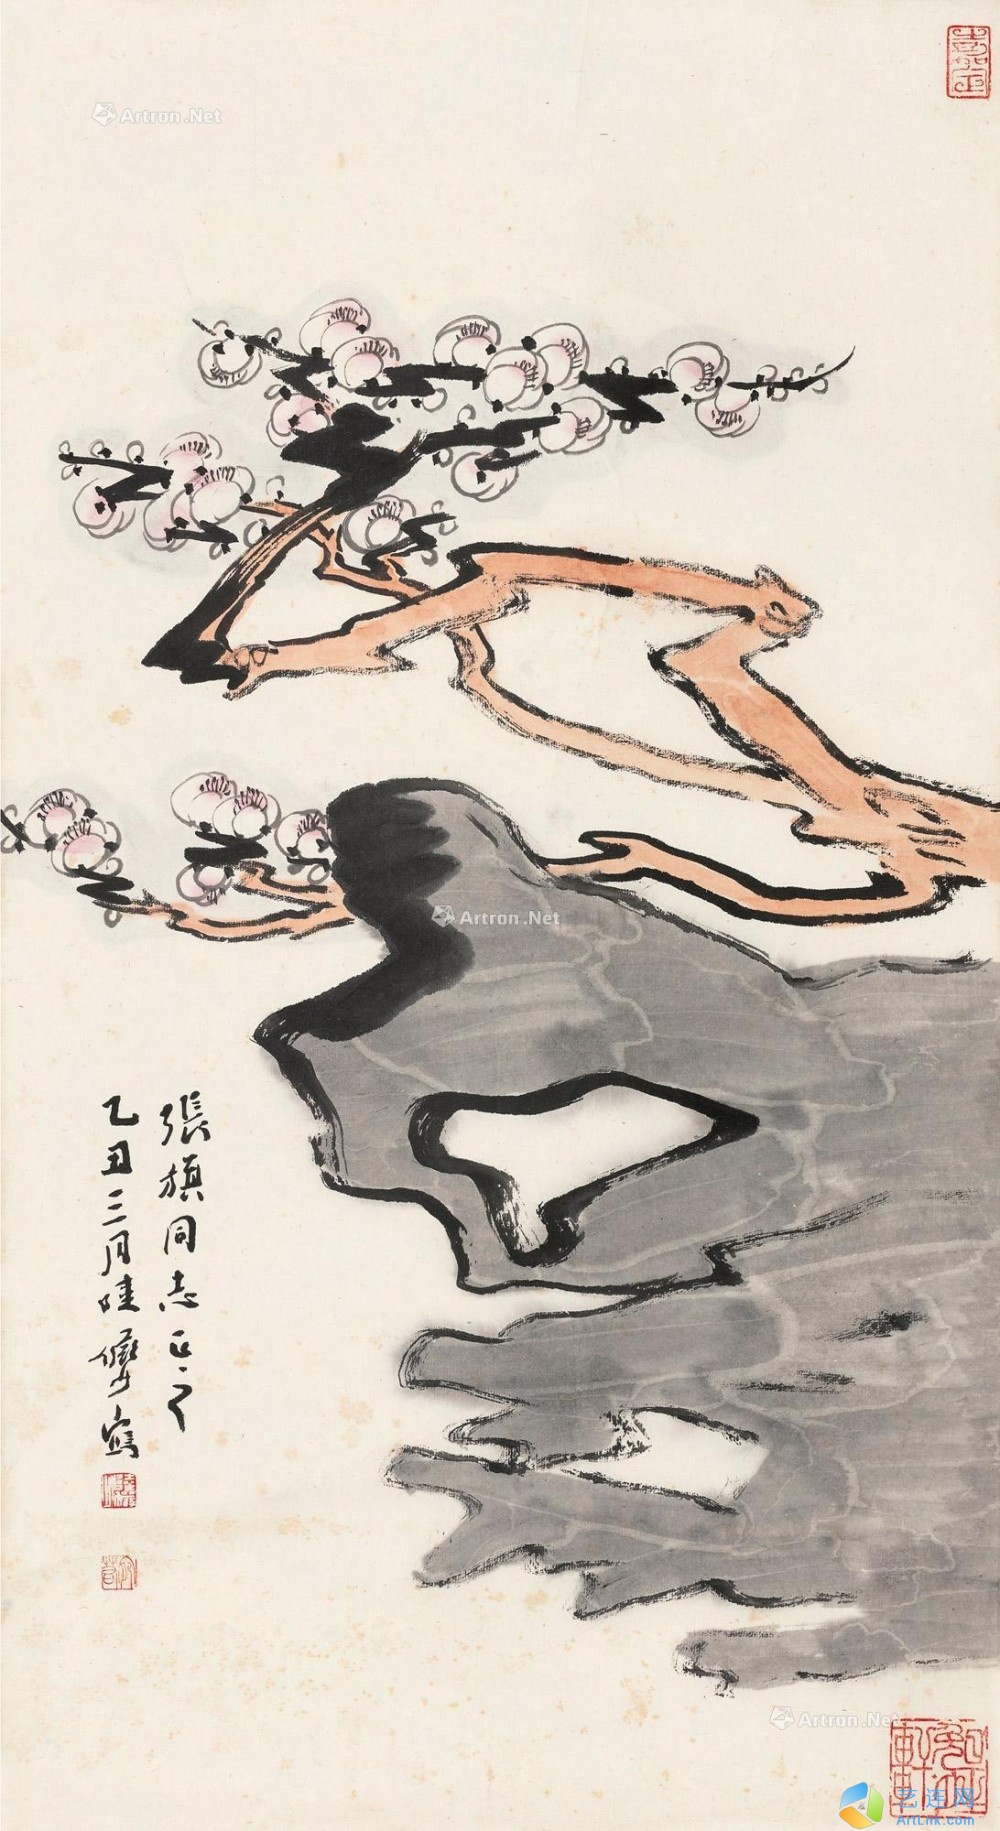 Artron.Net
張旗同志正之
乙丑三月陸儼少寫
Artron.Net
Artron.Net
艺连网
ArtLnk.com